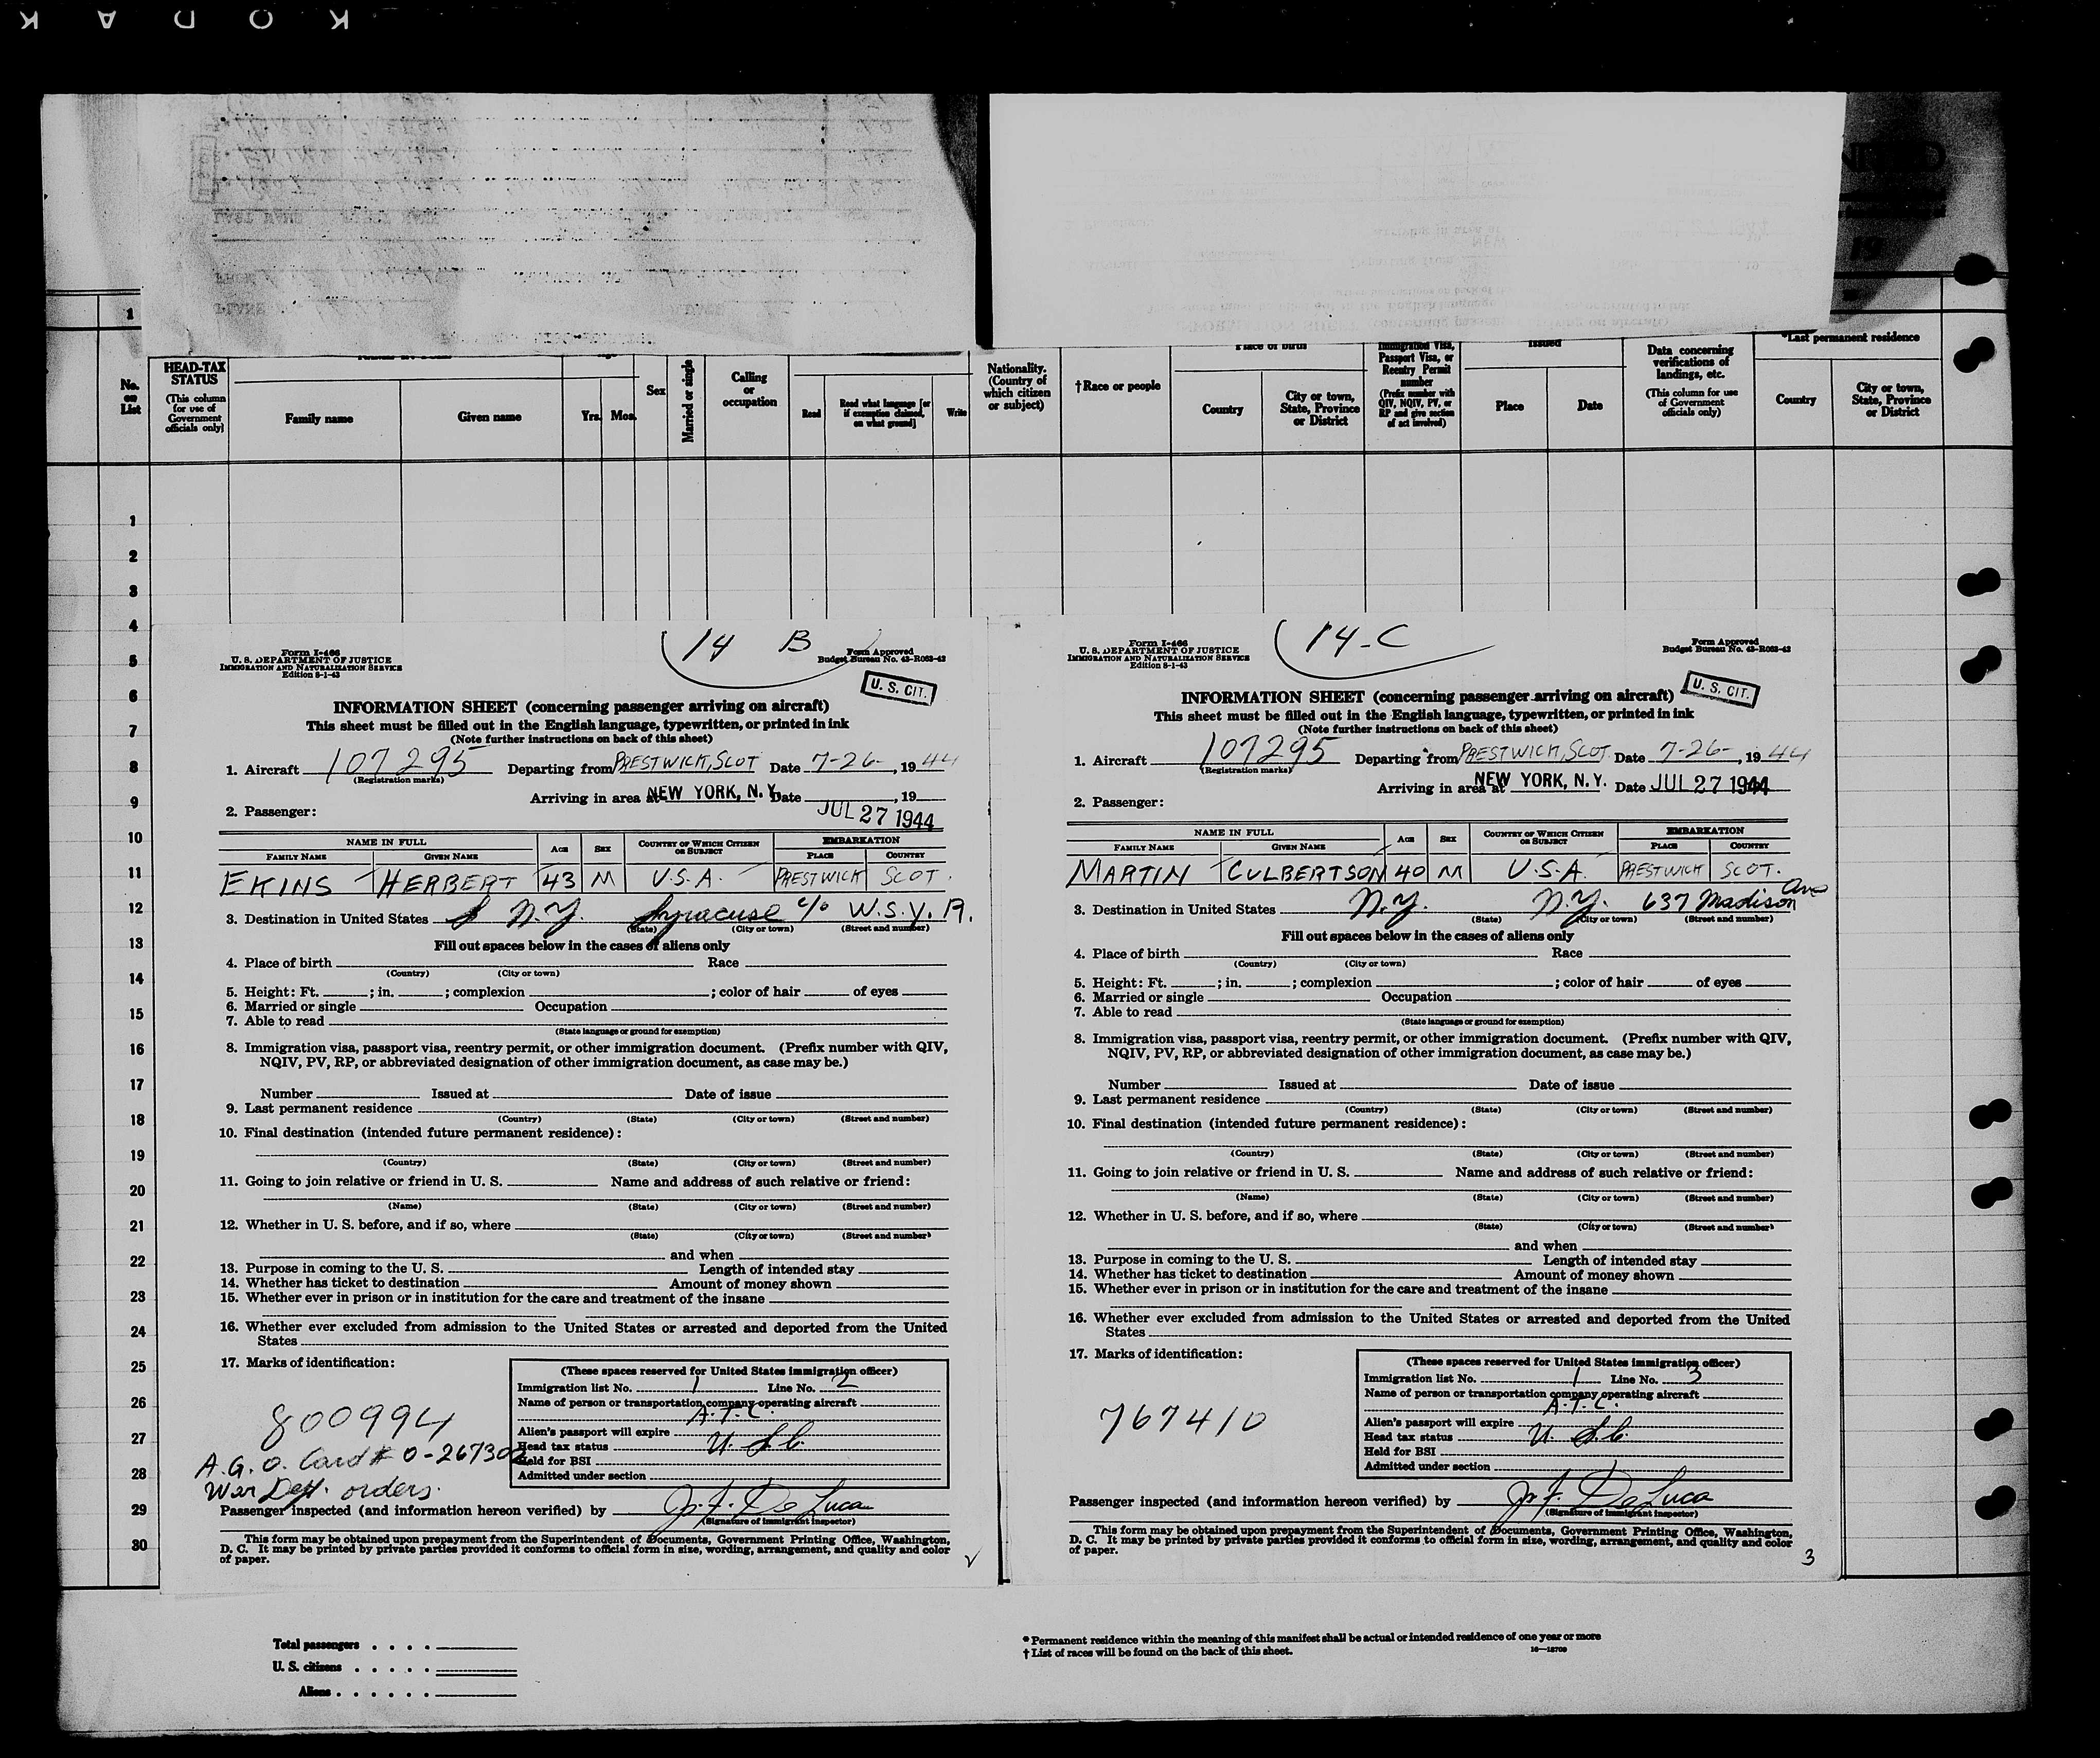 KODAK
1
HEAD-TAX STATUS
(This column for use of Government officials only)
No. on List
Family name
Given name
Yrs.
Mos.
Sex
Married or single
Calling or occupation
Read
Read what language [or if exemption claimed, on what ground]
Write
Nationality. (Country of which citizen or subject)
†Race or people
Place of birth
Country
City or town, State, Province or District
Immigration Visa, Passport Visa, or Reentry Permit number
(Prefix number with QIV, NQIV, PV, or RP and give section of act involved)
Issued
Place
Date
Data concerning verifications of landings, etc.
(This column for use of Government officials only)
*Last permanent residence
Country
City or town, State, Province or District
1
2
3
4
5
6
7
8
9
10
11
12
13
14
15
16
17
18
19
20
21
22
23
24
25
26
27
28
29
30
14 B
Form I-466
U. S. DEPARTMENT OF JUSTICE
IMMIGRATION AND NATURALIZATION SERVICE
Edition 8-1-43
Form Approved
Budget Bureau No. 43-R063-43
U. S. CIT.
INFORMATION SHEET (concerning passenger arriving on aircraft)
This sheet must be filled out in the English language, typewritten, or printed in ink
(Note further instructions on back of this sheet)
1. Aircraft 107295 Departing from PRESTWICK, SCOT Date 7-26-, 1944
(Registration marks)
Arriving in area at NEW YORK, N. Y. Date , 19
JUL 27 1944
2. Passenger:
NAME IN FULL AGE SEX COUNTRY OF WHICH CITIZEN OR SUBJECT EMBARKATION
FAMILY NAME GIVEN NAME PLACE COUNTRY
EKINS HERBERT 43 M U.S.A. PRESTWICK SCOT.
3. Destination in United States N.Y. Syracuse c/o W.S.Y.R.
(State) (City or town) (Street and number)
Fill out spaces below in the cases of aliens only
4. Place of birth Race
(Country) (City or town)
5. Height: Ft. ; in. ; complexion ; color of hair of eyes
6. Married or single Occupation
7. Able to read
(State language or ground for exemption)
8. Immigration visa, passport visa, reentry permit, or other immigration document. (Prefix number with QIV,
NQIV, PV, RP, or abbreviated designation of other immigration document, as case may be.)
Number Issued at Date of issue
9. Last permanent residence
(Country) (State) (City or town) (Street and number)
10. Final destination (intended future permanent residence):
(Country) (State) (City or town) (Street and number)
11. Going to join relative or friend in U. S. Name and address of such relative or friend:
(Name) (State) (City or town) (Street and number)
12. Whether in U. S. before, and if so, where
(State) (City or town) (Street and number)
and when
13. Purpose in coming to the U. S. Length of intended stay
14. Whether has ticket to destination Amount of money shown
15. Whether ever in prison or in institution for the care and treatment of the insane
16. Whether ever excluded from admission to the United States or arrested and deported from the United
States
17. Marks of identification:
(These spaces reserved for United States immigration officer)
Immigration list No. 1 Line No. 2
Name of person or transportation company operating aircraft
A.T.C.
Alien's passport will expire
Head tax status U.S.C.
Held for BSI
Admitted under section
800994
A.G.O. Card # 0-267302
War Dept. orders.
Passenger inspected (and information hereon verified) by J. F. De Luca
(Signature of immigrant inspector)
This form may be obtained upon prepayment from the Superintendent of Documents, Government Printing Office, Washington,
D. C. It may be printed by private parties provided it conforms to official form in size, wording, arrangement, and quality and color
of paper.
14-C
Form I-466
U. S. DEPARTMENT OF JUSTICE
IMMIGRATION AND NATURALIZATION SERVICE
Edition 8-1-43
Form Approved
Budget Bureau No. 43-R063-43
U. S. CIT.
INFORMATION SHEET (concerning passenger arriving on aircraft)
This sheet must be filled out in the English language, typewritten, or printed in ink
(Note further instructions on back of this sheet)
1. Aircraft 107295 Departing from PRESTWICK, SCOT. Date 7-26-, 1944
(Registration marks)
Arriving in area at NEW YORK, N. Y. Date JUL 27 1944
2. Passenger:
NAME IN FULL AGE SEX COUNTRY OF WHICH CITIZEN OR SUBJECT EMBARKATION
FAMILY NAME GIVEN NAME PLACE COUNTRY
MARTIN CULBERTSON 40 M U.S.A. PRESTWICK SCOT.
3. Destination in United States N.Y. N.Y. 637 Madison Ave
(State) (City or town) (Street and number)
Fill out spaces below in the cases of aliens only
4. Place of birth Race
(Country) (City or town)
5. Height: Ft. ; in. ; complexion ; color of hair of eyes
6. Married or single Occupation
7. Able to read
(State language or ground for exemption)
8. Immigration visa, passport visa, reentry permit, or other immigration document. (Prefix number with QIV,
NQIV, PV, RP, or abbreviated designation of other immigration document, as case may be.)
Number Issued at Date of issue
9. Last permanent residence
(Country) (State) (City or town) (Street and number)
10. Final destination (intended future permanent residence):
(Country) (State) (City or town) (Street and number)
11. Going to join relative or friend in U. S. Name and address of such relative or friend:
(Name) (State) (City or town) (Street and number)
12. Whether in U. S. before, and if so, where
(State) (City or town) (Street and number)
and when
13. Purpose in coming to the U. S. Length of intended stay
14. Whether has ticket to destination Amount of money shown
15. Whether ever in prison or in institution for the care and treatment of the insane
16. Whether ever excluded from admission to the United States or arrested and deported from the United
States
17. Marks of identification:
(These spaces reserved for United States immigration officer)
Immigration list No. 1 Line No. 3
Name of person or transportation company operating aircraft
A.T.C.
Alien's passport will expire
Head tax status U.S.C.
Held for BSI
Admitted under section
767410
Passenger inspected (and information hereon verified) by J. F. De Luca
(Signature of immigrant inspector)
This form may be obtained upon prepayment from the Superintendent of Documents, Government Printing Office, Washington,
D. C. It may be printed by private parties provided it conforms to official form in size, wording, arrangement, and quality and color
of paper.
3
Total passengers . . . .
U. S. citizens . . . . .
Aliens . . . . . .
* Permanent residence within the meaning of this manifest shall be actual or intended residence of one year or more
† List of races will be found on the back of this sheet.
16—18709